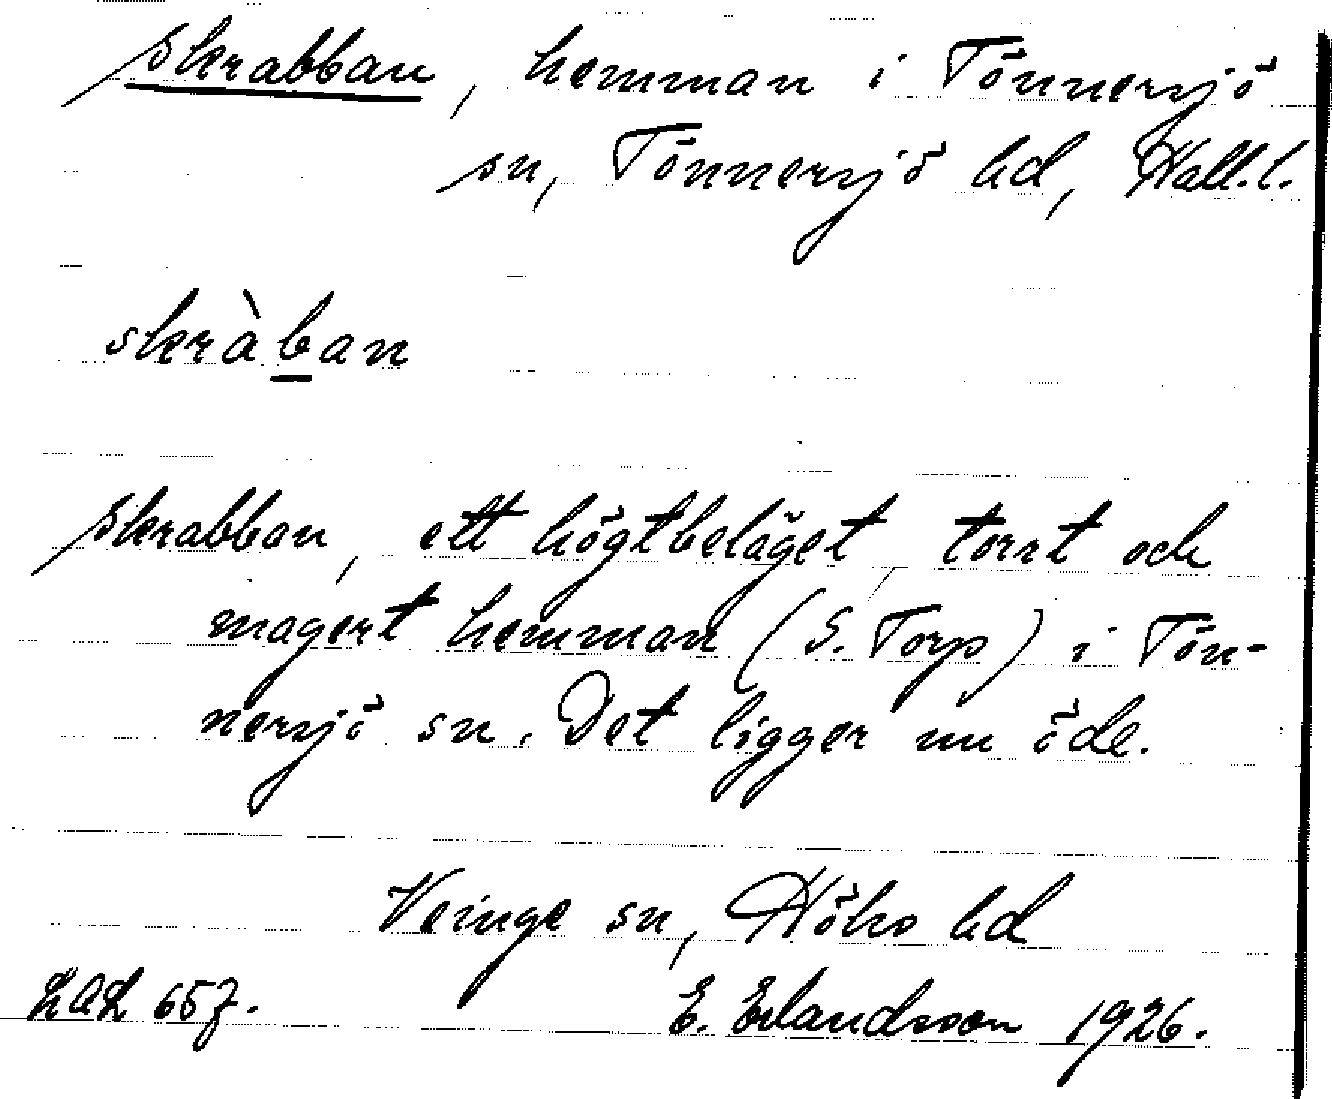 Skrabban, hemman i Tönnersjö
sn, Tönnersjö hd, Hall.l.
skràb̲an
Skrabban, ett högtbeläget, torrt och
magert hemman (S. Torp) i Tön-
nersjö sn. Det ligger nu öde.
Veinge sn, Höks hd
LAL 657. E. Erlandsson 1926.